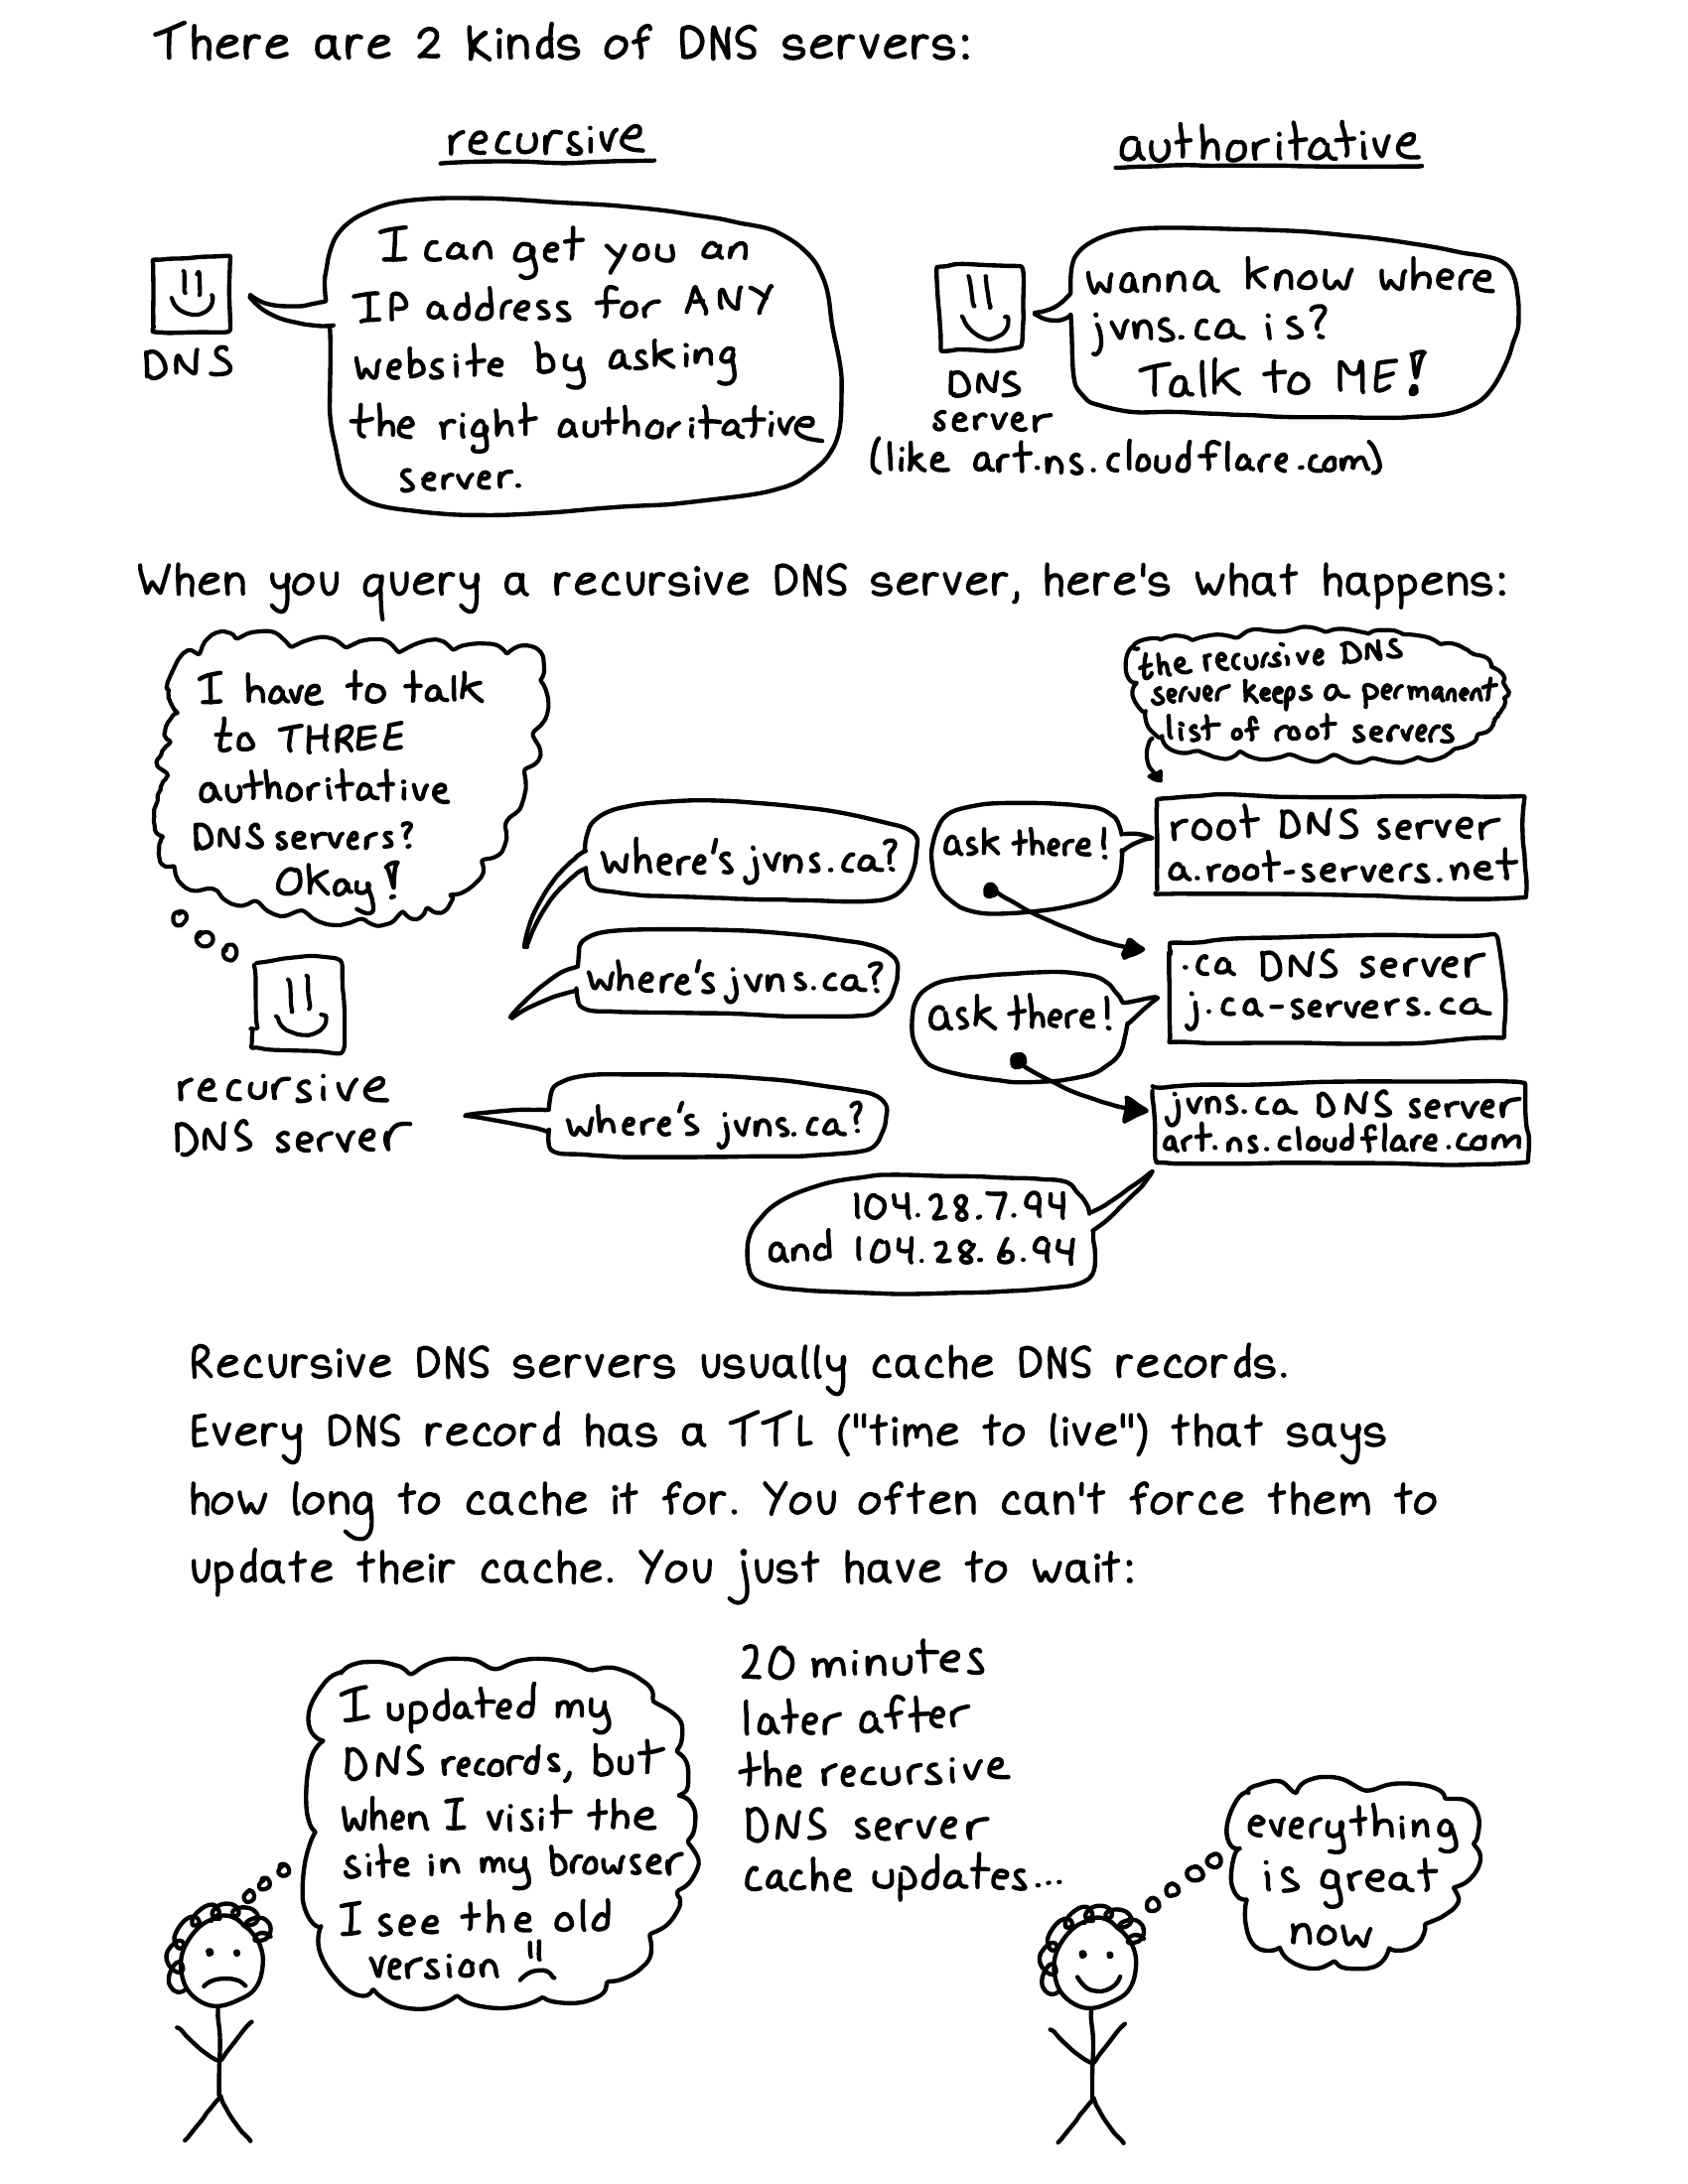 There are 2 kinds of DNS servers:
recursive
I can get you an
IP address for ANY
website by asking
the right authoritative
server.
DNS
authoritative
wanna know where
jvns.ca is?
Talk to ME!
DNS
server
(like art.ns.cloudflare.com)
When you query a recursive DNS server, here's what happens:
I have to talk
to THREE
authoritative
DNS servers?
Okay!
recursive
DNS server
the recursive DNS
server keeps a permanent
list of root servers
where's jvns.ca?
ask there!
root DNS server
a.root-servers.net
where's jvns.ca?
ask there!
.ca DNS server
j.ca-servers.ca
where's jvns.ca?
jvns.ca DNS server
art.ns.cloudflare.com
104.28.7.94
and 104.28.6.94
Recursive DNS servers usually cache DNS records.
Every DNS record has a TTL ("time to live") that says
how long to cache it for. You often can't force them to
update their cache. You just have to wait:
I updated my
DNS records, but
when I visit the
site in my browser
I see the old
version
20 minutes
later after
the recursive
DNS server
cache updates...
everything
is great
now